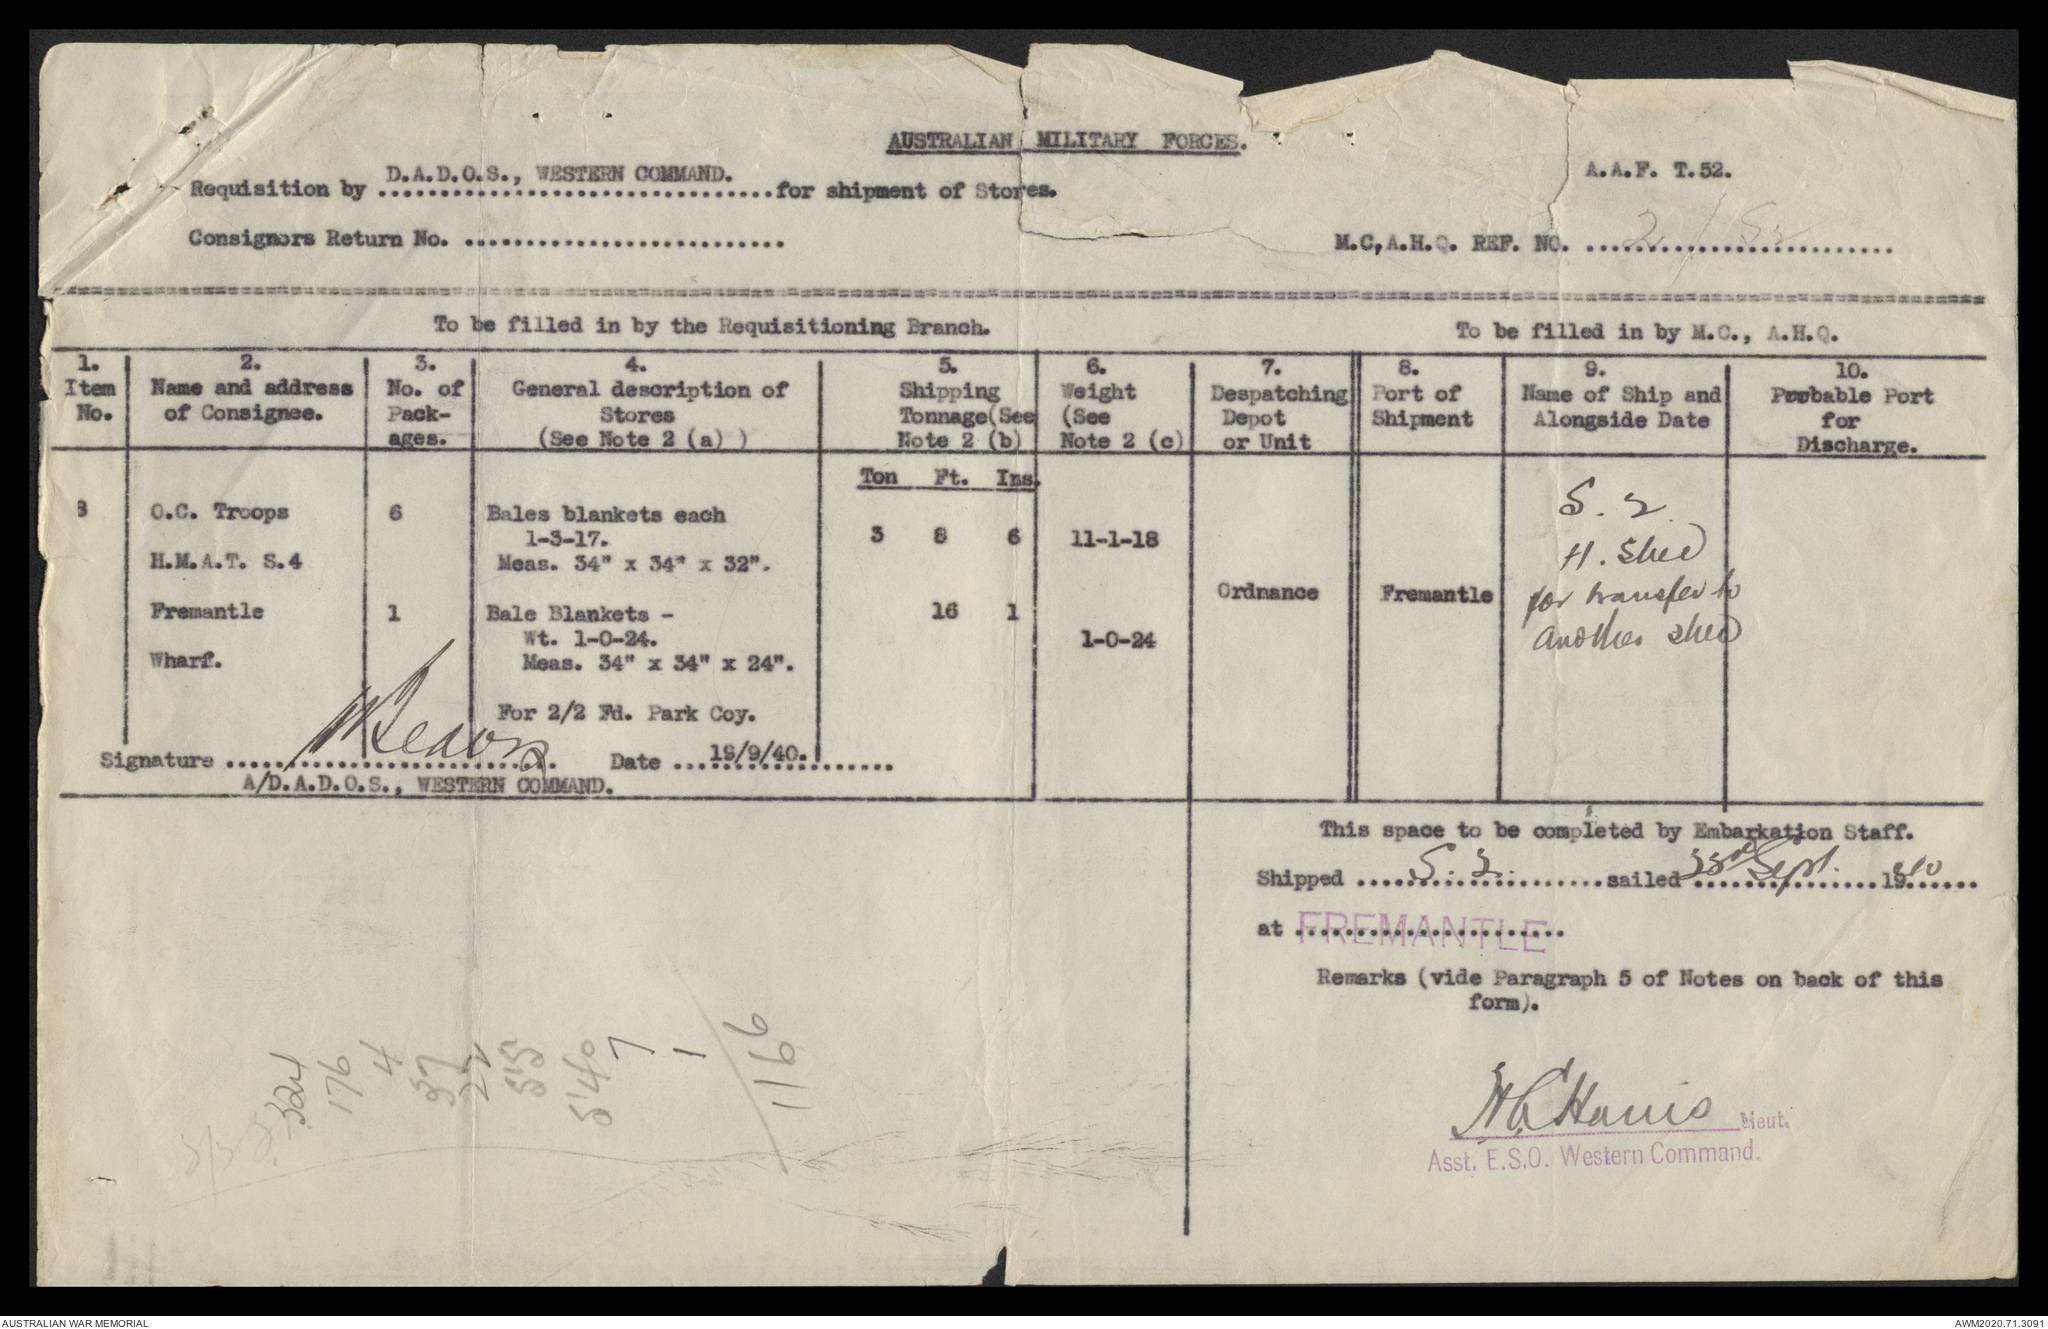 AUSTRALIAN MILITARY FORCES.
A.A.F. T.52.
Requisition by D.A.D.O.S., WESTERN COMMAND. for shipment of Stores.
Consignors Return No. ..........................
M.C,A.H.Q. REF. NO. 2/52
To be filled in by the Requisitioning Branch.
To be filled in by M.C., A.H.Q.
1. Item No.
2. Name and address of Consignee.
3. No. of Pack-ages.
4. General description of Stores (See Note 2 (a) )
5. Shipping Tonnage(See Note 2 (b)
6. Weight (See Note 2 (c)
7. Despatching Depot or Unit
8. Port of Shipment
9. Name of Ship and Alongside Date
10. Probable Port for Discharge.
Ton Ft. Ins.
8 O.C. Troops 6 Bales blankets each
1-3-17. 3 8 6 11-1-18
H.M.A.T. S.4 Meas. 34" x 34" x 32".
Ordnance Fremantle
S. 2.
H. Shed
for transfer to
another shed
Fremantle 1 Bale Blankets - 16 1
Wt. 1-0-24. 1-0-24
Wharf. Meas. 34" x 34" x 24".
For 2/2 Fd. Park Coy.
Signature .......... Date ...19/9/40.
A/D.A.D.O.S., WESTERN COMMAND.
This space to be completed by Embarkation Staff.
Shipped S. 2. sailed 22nd Sept. 1940
at FREMANTLE
Remarks (vide Paragraph 5 of Notes on back of this
form).
324
176
4
37
22
55
540
7
1
1166
Harris Lieut.
Asst. E.S.O. Western Command.
AUSTRALIAN WAR MEMORIAL
AWM2020.71.3091